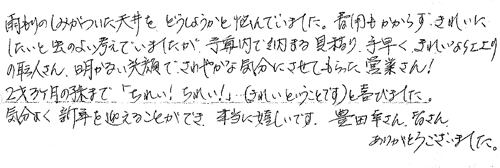 雨もりのしみがついた天井を どうしようかと悩んでいました。費用もかからず、きれいに
したいと虫のよい考えでいましたが、予算内で納まる見積り、手早く、きれいな仕上り
の職人さん、明かるい笑顔で、さわやかな気分にさせてもらった営業さん!
2才3ヶ月の孫まで「ちれい!ちれい!」(きれいということです)と喜びました。
気分よく新年を迎えることができ、本当に嬉しいです。豊田幸さん、皆さん
ありがとうございました。